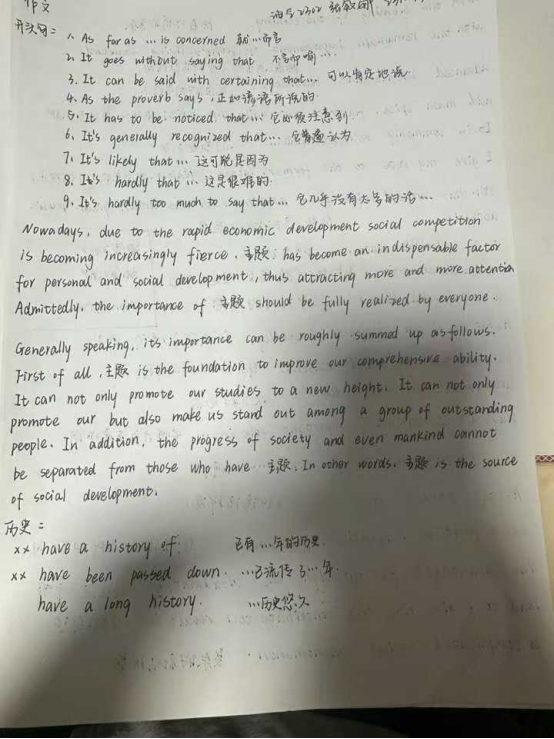 作文
油气2302
开头句：1. As far as … is concerned 就…而言
2. It goes without saying that 不言而喻…
3. It can be said with certaining that… 可以肯定地说
4. As the proverb says, 正如谚语所说的.
5. It has to be noticed that… 它必须注意到
6. It's generally recognized that… 它普遍认为
7. It's likely that… 这可能是因为
8. It's hardly that… 这是很难的.
9. It's hardly too much to say that… 它几乎没有太多的话…
Nowadays, due to the rapid economic development social competition
is becoming increasingly fierce, 主题 has become an indispensable factor
for personal and social development, thus attracting more and more attention
Admittedly, the importance of 主题 should be fully realized by everyone.
Generally speaking, it's importance can be roughly summed up as follows.
First of all, 主题 is the foundation to improve our comprehensive ability.
It can not only promote our studies to a new height. It can not only
promote our but also make us stand out among a group of outstanding
people. In addition, the progress of society and even mankind cannot
be separated from those who have 主题. In other words, 主题 is the source
of social development.
历史：
xx have a history of 已有…年的历史.
xx have been passed down. …已流传了…年.
have a long history. …历史悠久